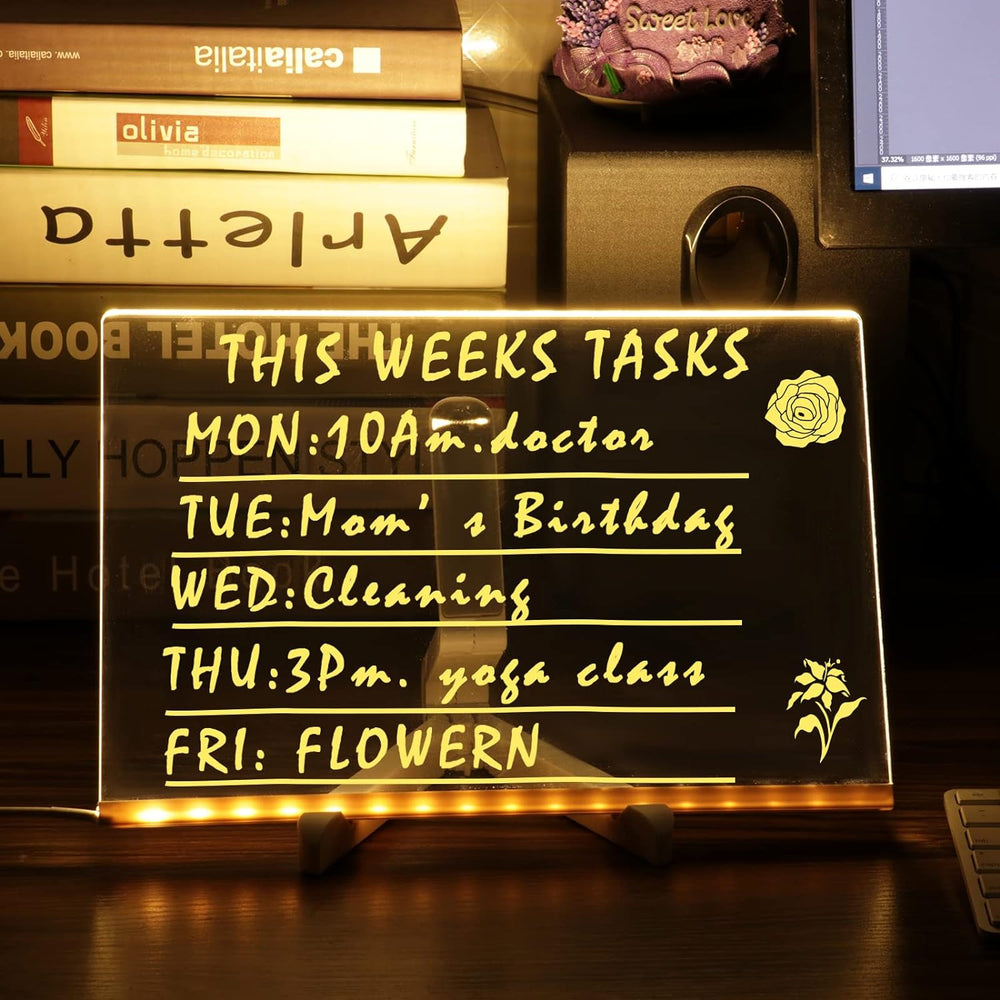 www.caliaitalia.co
caliaitalia
olivia
home decoration
Arletta
THE HOTEL BOOK
LLY HOPPEN STY
e Hotel Book
Sweet Love
37.32% 1600 像素 x 1600 像素 (96 ppi)
THIS WEEKS TASKS
MON:10Am.doctor
TUE:Mom's Birthday
WED:Cleaning
THU:3Pm. yoga class
FRI: FLOWERN